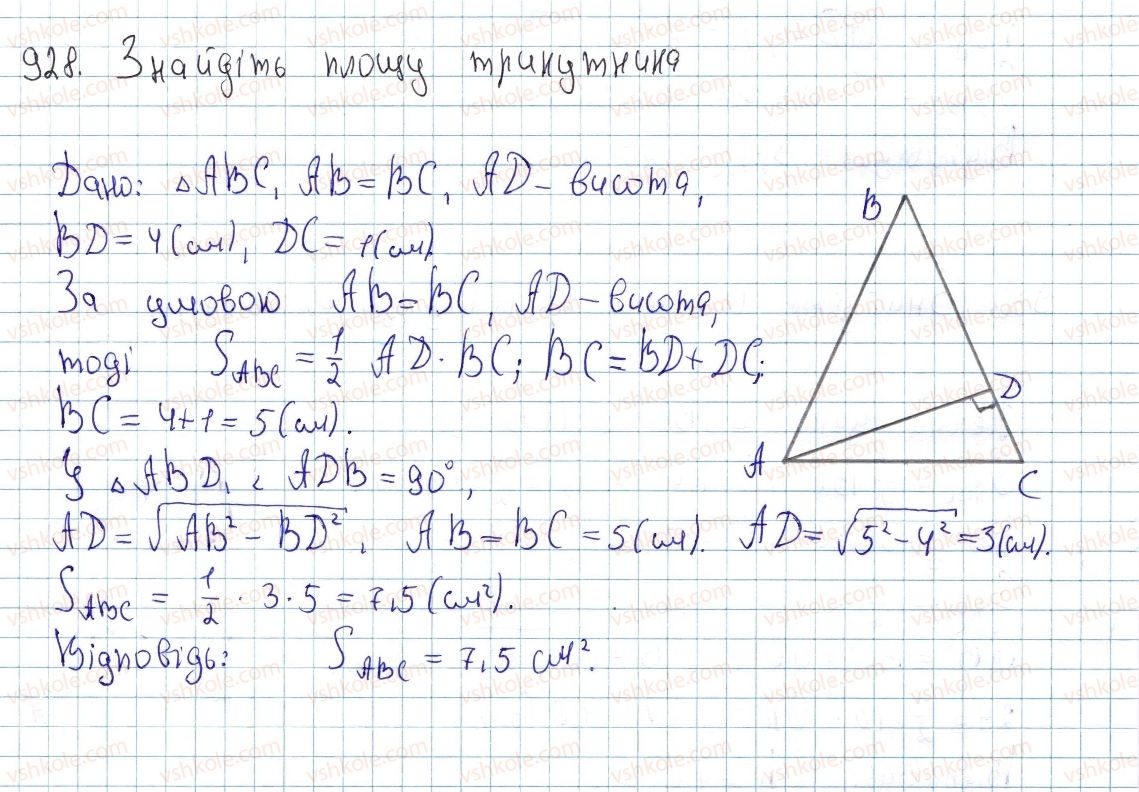 928. Знайдіть площу трикутника
Дано: △ABC, AB = BC, AD – висота,
BD = 4 (см), DC = 1 (см).
За умовою AB = BC, AD – висота,
тоді S_ABC = 1/2 AD · BC; BC = BD + DC;
BC = 4 + 1 = 5 (см).
У △ABD, ∠ADB = 90°,
AD = √(AB² – BD²), AB = BC = 5 (см). AD = √(5² – 4²) = 3 (см).
S_ABC = 1/2 · 3 · 5 = 7,5 (см²).
Відповідь: S_ABC = 7,5 см².
B
D
A
C
vshkole.com